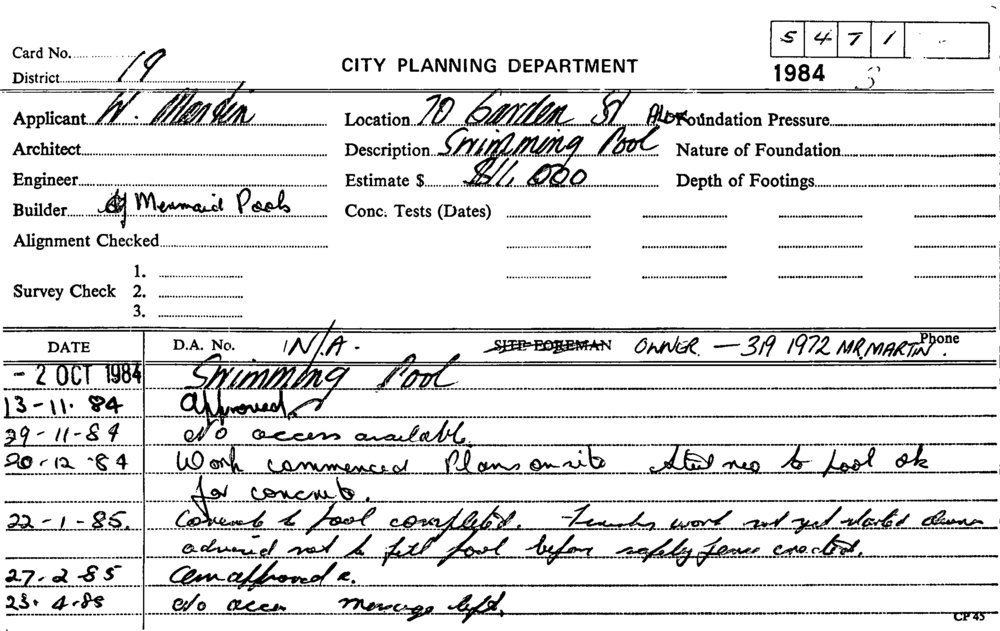 5 4 7 1
Card No.
District 19
CITY PLANNING DEPARTMENT
1984
Applicant W. Martin
Location 70 Garden St
Foundation Pressure
Architect
Description Swimming Pool
Nature of Foundation
Engineer
Estimate $ $11,000
Depth of Footings
Builder Mermaid Pools
Conc. Tests (Dates)
Alignment Checked
1.
Survey Check 2.
3.
DATE D.A. No. N/A. SITE FOREMAN OWNER. - 319 1972 MR. MARTIN. Phone
- 2 OCT 1984 Swimming Pool
13-11-84 Approved.
29-11-84 No access available.
20-12-84 Work commenced Plans on site Steel reo to pool ok
for concrete.
22-1-85. Concrete to pool completed. work not yet started Owner
advised not to fill pool before safety fence erected.
27-2-85 approved
23.4.85 No access message left.
CP 45